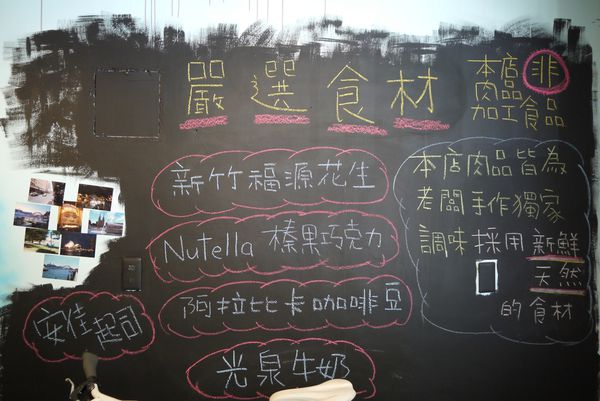 嚴選食材
本店 非
肉品
加工食品
新竹福源花生
Nutella 榛果巧克力
阿拉比卡咖啡豆
安佳起司
光泉牛奶
本店肉品皆為
老闆手作獨家
調味採用新鮮
天然
的食材